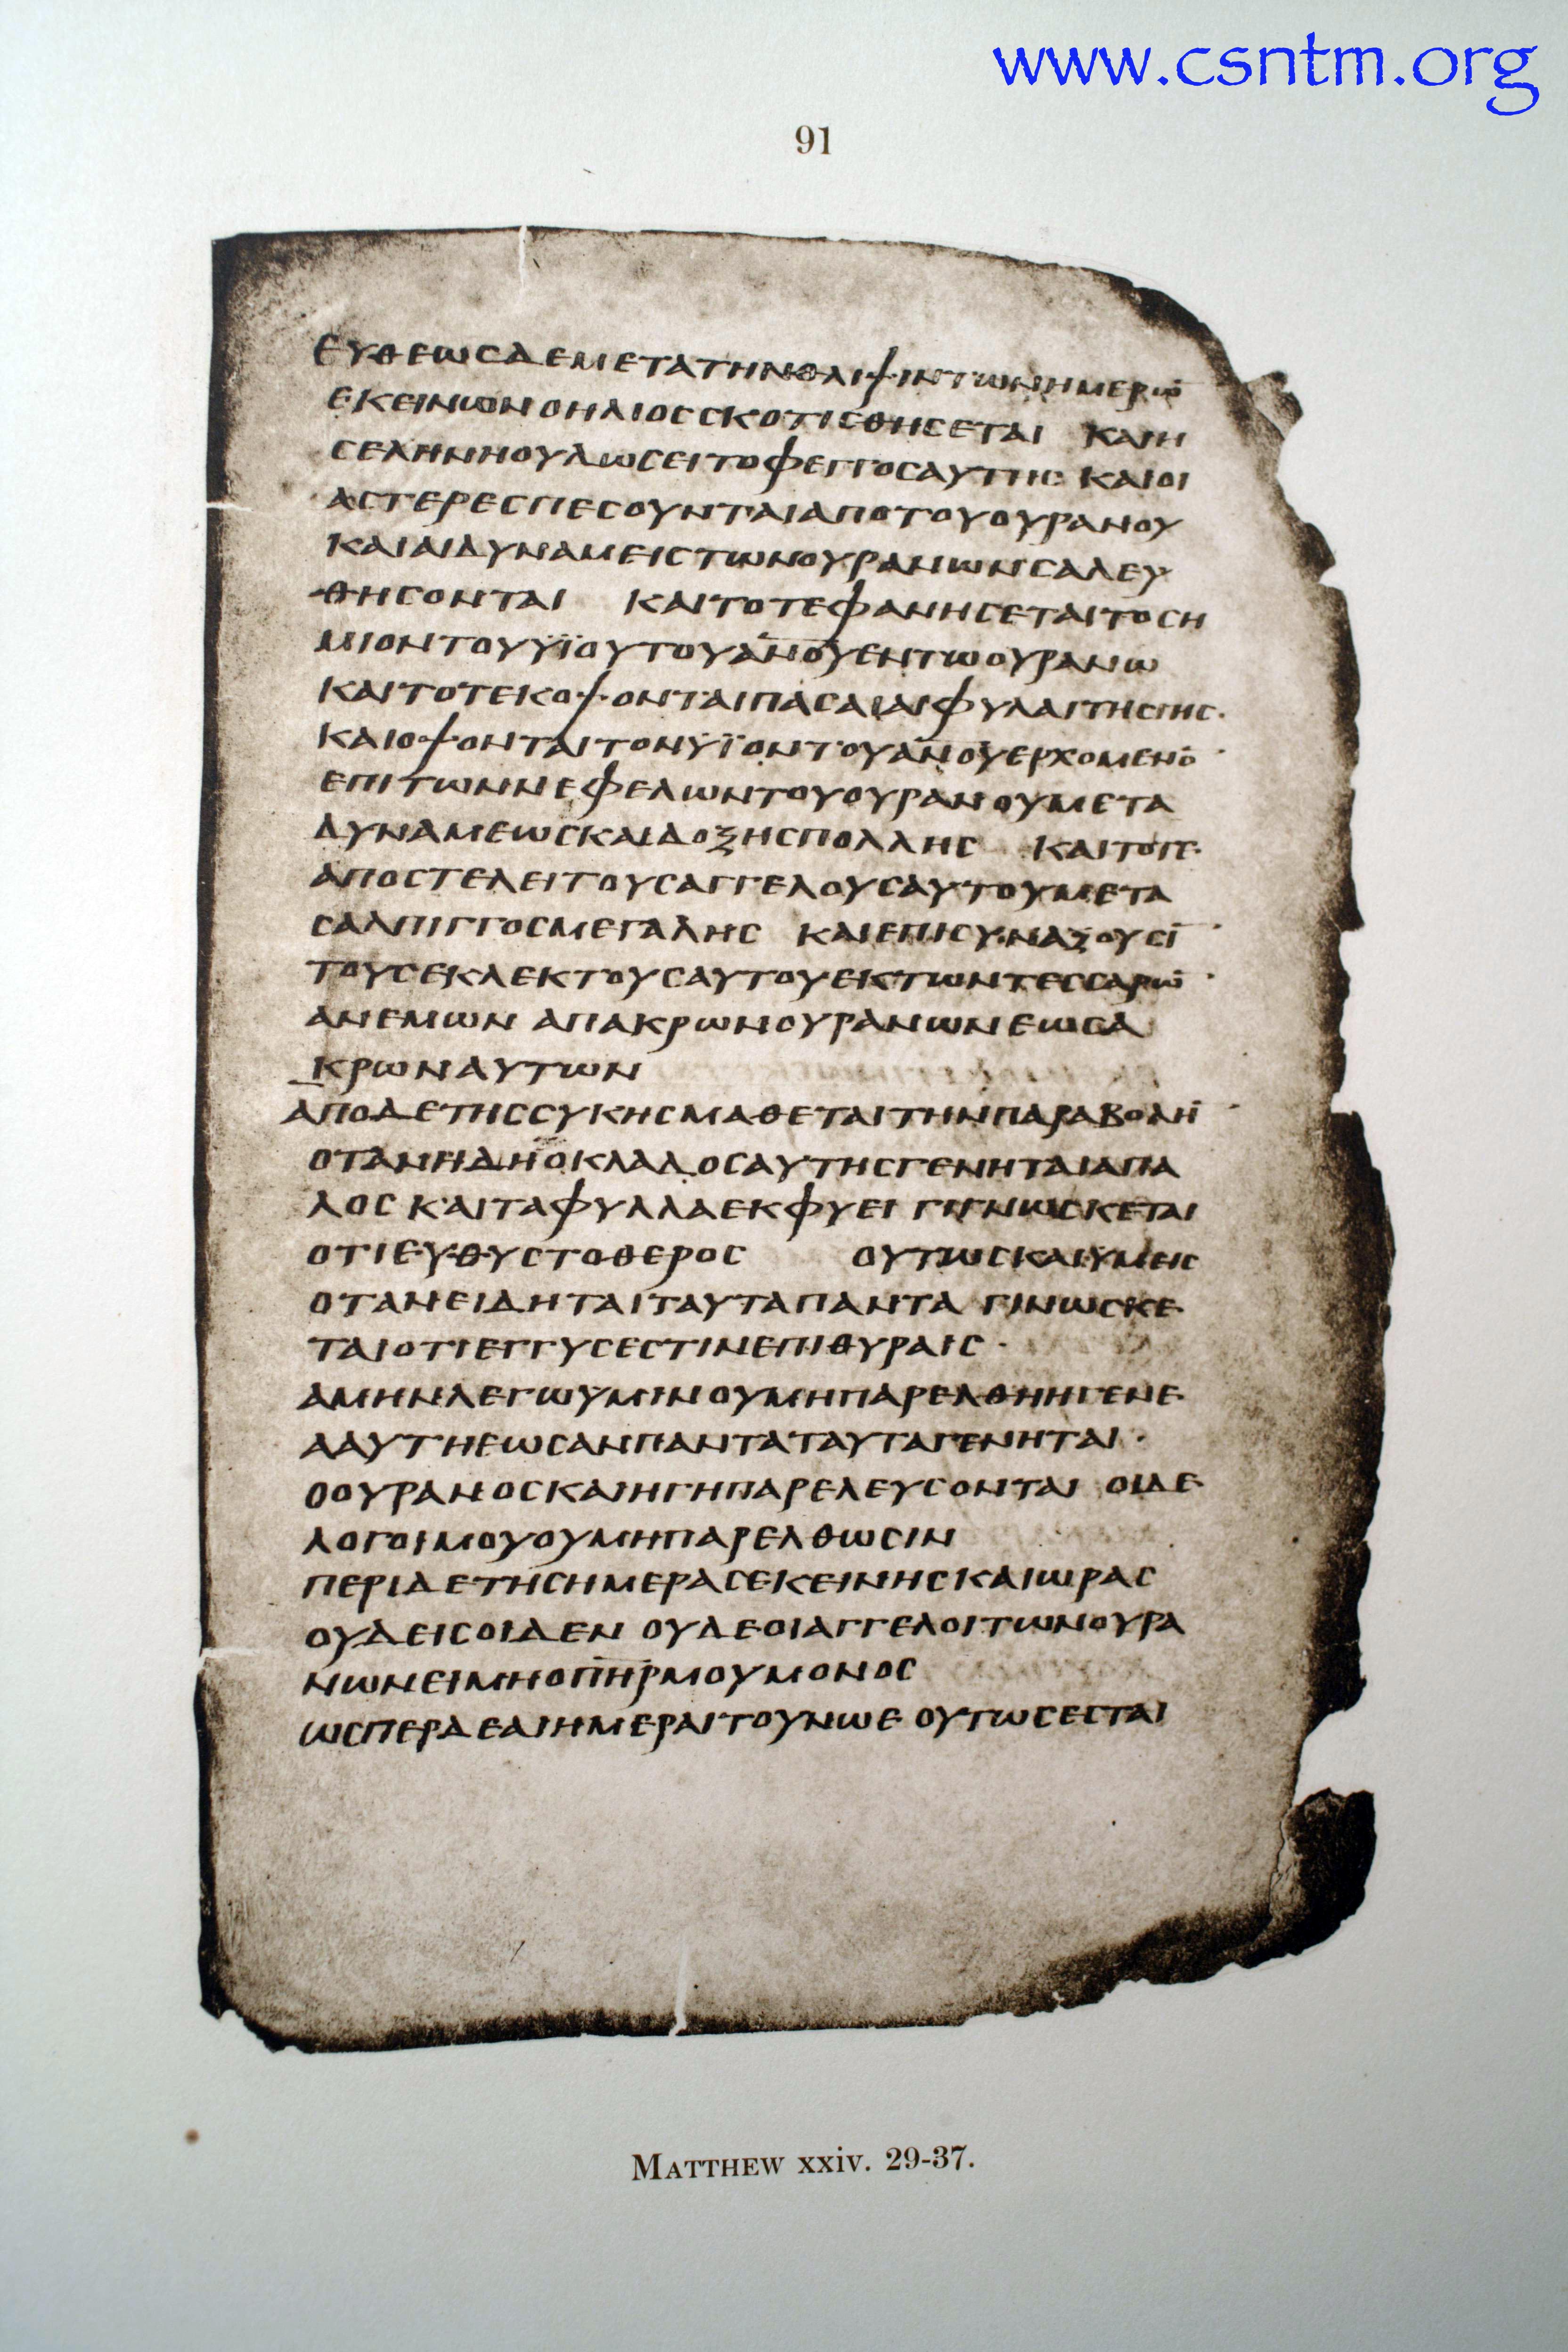 www.csntm.org
91
ΕΥΘΕωCΔΕΜΕΤΑΤΗΝΘΛΙΨΙΝΤωΝΗΜΕΡω̅
ΕΚΕΙΝωΝΟΗΛΙΟCCΚΟΤΙCΘΗCΕΤΑΙ ΚΑΙΗ
CΕΛΗΝΗΟΥΔωCΕΙΤΟΦΕΓΓΟCΑΥΤΗC ΚΑΙΟΙ
ΑCΤΕΡΕCΠΕCΟΥΝΤΑΙΑΠΟΤΟΥΟΥΡΑΝΟΥ
ΚΑΙΑΙΔΥΝΑΜΕΙCΤωΝΟΥΡΑΝωΝCΑΛΕΥ
ΘΗCΟΝΤΑΙ ΚΑΙΤΟΤΕΦΑΝΗCΕΤΑΙΤΟCΗ
ΜΙΟΝΤΟΥΫΪΟΥΤΟΥΑ̅Ν̅Ο̅Υ̅ΕΝΤωΟΥΡΑΝω
ΚΑΙΤΟΤΕΚΟΨΟΝΤΑΙΠΑCΑΙΑΙΦΥΛΑΙΤΗCΓΗC·
ΚΑΙΟΨΟΝΤΑΙΤΟΝΫΪΟΝΤΟΥΑ̅Ν̅Ο̅Υ̅ΕΡΧΟΜΕΝΟ̅
ΕΠΙΤωΝΝΕΦΕΛωΝΤΟΥΟΥΡΑΝΟΥΜΕΤΑ
ΔΥΝΑΜΕωCΚΑΙΔΟΞΗCΠΟΛΛΗC ΚΑΙΤΟΤΕ
ΑΠΟCΤΕΛΕΙΤΟΥCΑΓΓΕΛΟΥCΑΥΤΟΥΜΕΤΑ
CΑΛΠΙΓΓΟCΜΕΓΑΛΗC ΚΑΙΕΠΙCΥΝΑΞΟΥCΙ̅
ΤΟΥCΕΚΛΕΚΤΟΥCΑΥΤΟΥΕΚΤωΝΤΕCCΑΡω̅
ΑΝΕΜωΝ ΑΠΑΚΡωΝΟΥΡΑΝωΝΕωCΑ
ΚΡωΝΑΥΤωΝ
ΑΠΟΔΕΤΗCCΥΚΗCΜΑΘΕΤΑΙΤΗΝΠΑΡΑΒΟΛΗ̅
ΟΤΑΝΗΔΗΟΚΛΑΔΟCΑΥΤΗCΓΕΝΗΤΑΙΑΠΑ
ΛΟC ΚΑΙΤΑΦΥΛΛΑΕΚΦΥΕΙ ΓΙΓΝωCΚΕΤΑΙ
ΟΤΙΕΥΘΥCΤΟΘΕΡΟC ΟΥΤωCΚΑΙΥΜΕΙC
ΟΤΑΝΕΙΔΗΤΑΙΤΑΥΤΑΠΑΝΤΑ ΓΙΝωCΚΕ
ΤΑΙΟΤΙΕΓΓΥCΕCΤΙΝΕΠΙΘΥΡΑΙC·
ΑΜΗΝΛΕΓωΥΜΙΝΟΥΜΗΠΑΡΕΛΘΗΗΓΕΝΕ
ΑΑΥΤΗΕωCΑΝΠΑΝΤΑΤΑΥΤΑΓΕΝΗΤΑΙ·
ΟΟΥΡΑΝΟCΚΑΙΗΓΗΠΑΡΕΛΕΥCΟΝΤΑΙ ΟΙΔΕ
ΛΟΓΟΙΜΟΥΟΥΜΗΠΑΡΕΛΘωCΙΝ
ΠΕΡΙΔΕΤΗCΗΜΕΡΑCΕΚΕΙΝΗCΚΑΙωΡΑC
ΟΥΔΕΙCΟΙΔΕΝ ΟΥΔΕΟΙΑΓΓΕΛΟΙΤωΝΟΥΡΑ
ΝωΝΕΙΜΗΟΠ̅Η̅Ρ̅ΜΟΥΜΟΝΟC
ωCΠΕΡΔΕΑΙΗΜΕΡΑΙΤΟΥΝωΕ ΟΥΤωCΕCΤΑΙ
MATTHEW xxiv. 29-37.